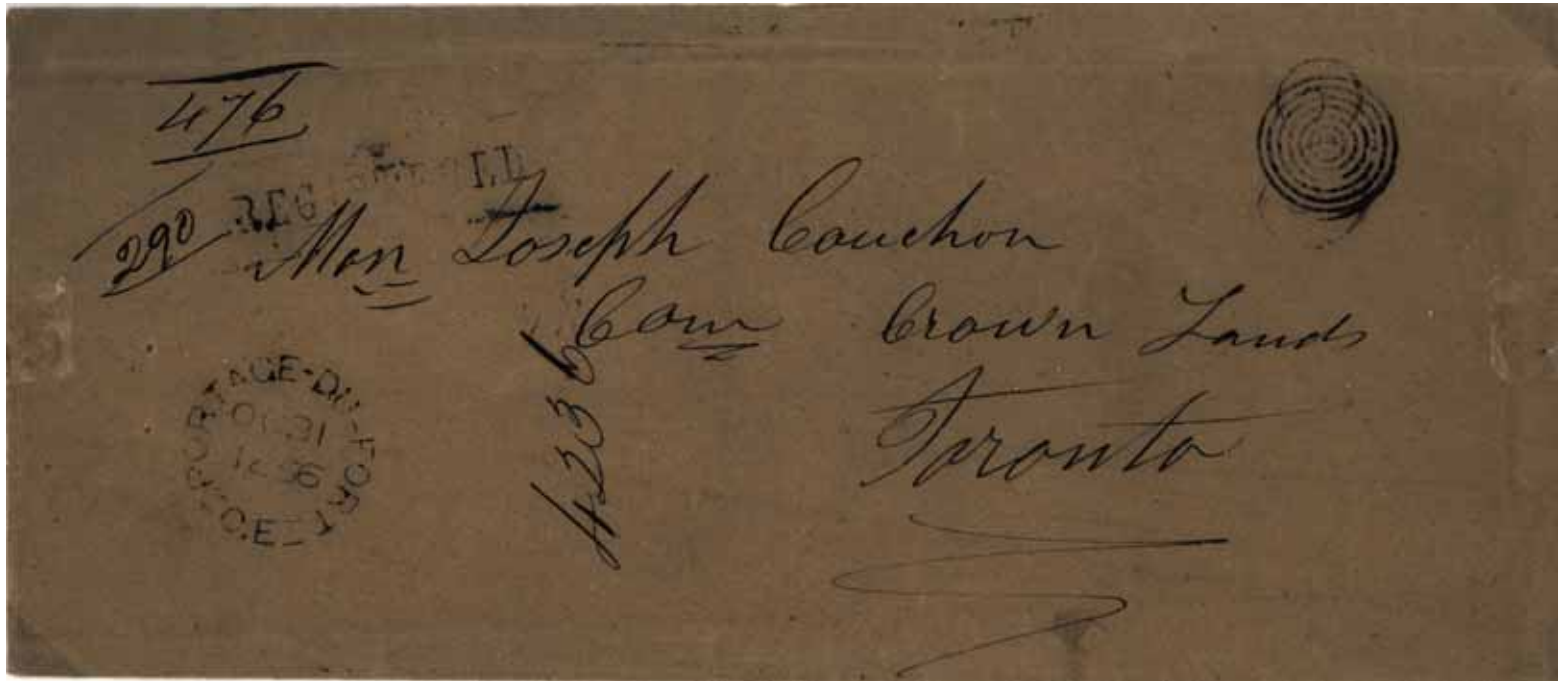 476
REGISTERED
290
Hon Joseph Cauchon
Com Crown Lands
Toronto
4236
PORTAGE-DU-FORT
OC 31
1856
C.E.